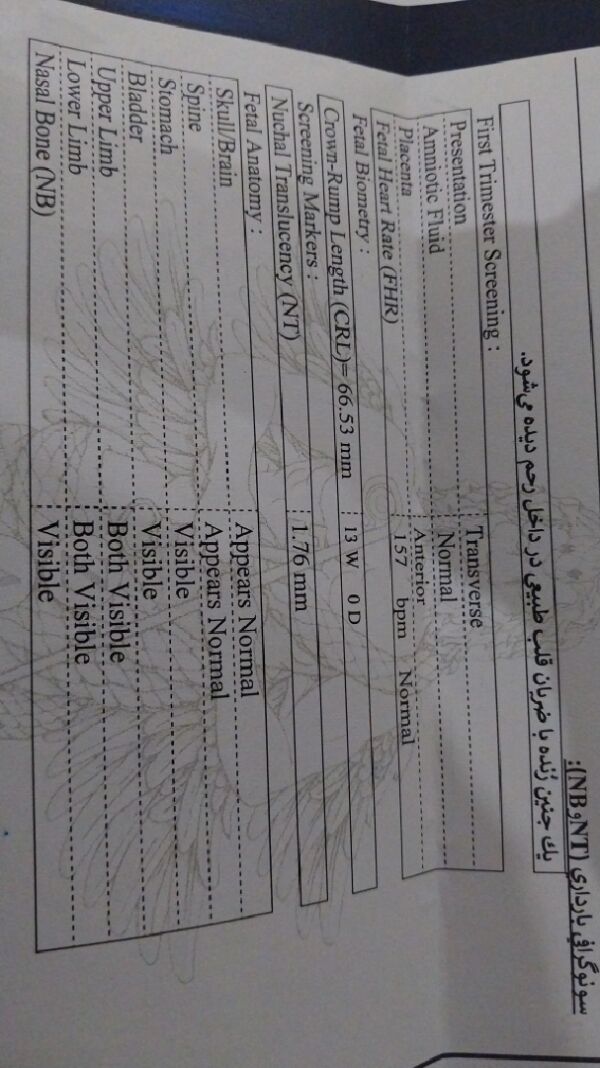 سونوگرافی بارداری (NT و NB):
یک جنین زنده با ضربان قلب طبیعی در داخل رحم دیده می شود.
First Trimester Screening :
Presentation Transverse
Amniotic Fluid Normal
Placenta Anterior
Fetal Heart Rate (FHR) 157 bpm Normal
Fetal Biometry :
Crown-Rump Length (CRL)= 66.53 mm 13 W 0 D
Screening Markers :
Nuchal Translucency (NT) 1.76 mm
Fetal Anatomy :
Skull/Brain Appears Normal
Spine Appears Normal
Stomach Visible
Bladder Visible
Upper Limb Both Visible
Lower Limb Both Visible
Nasal Bone (NB) Visible